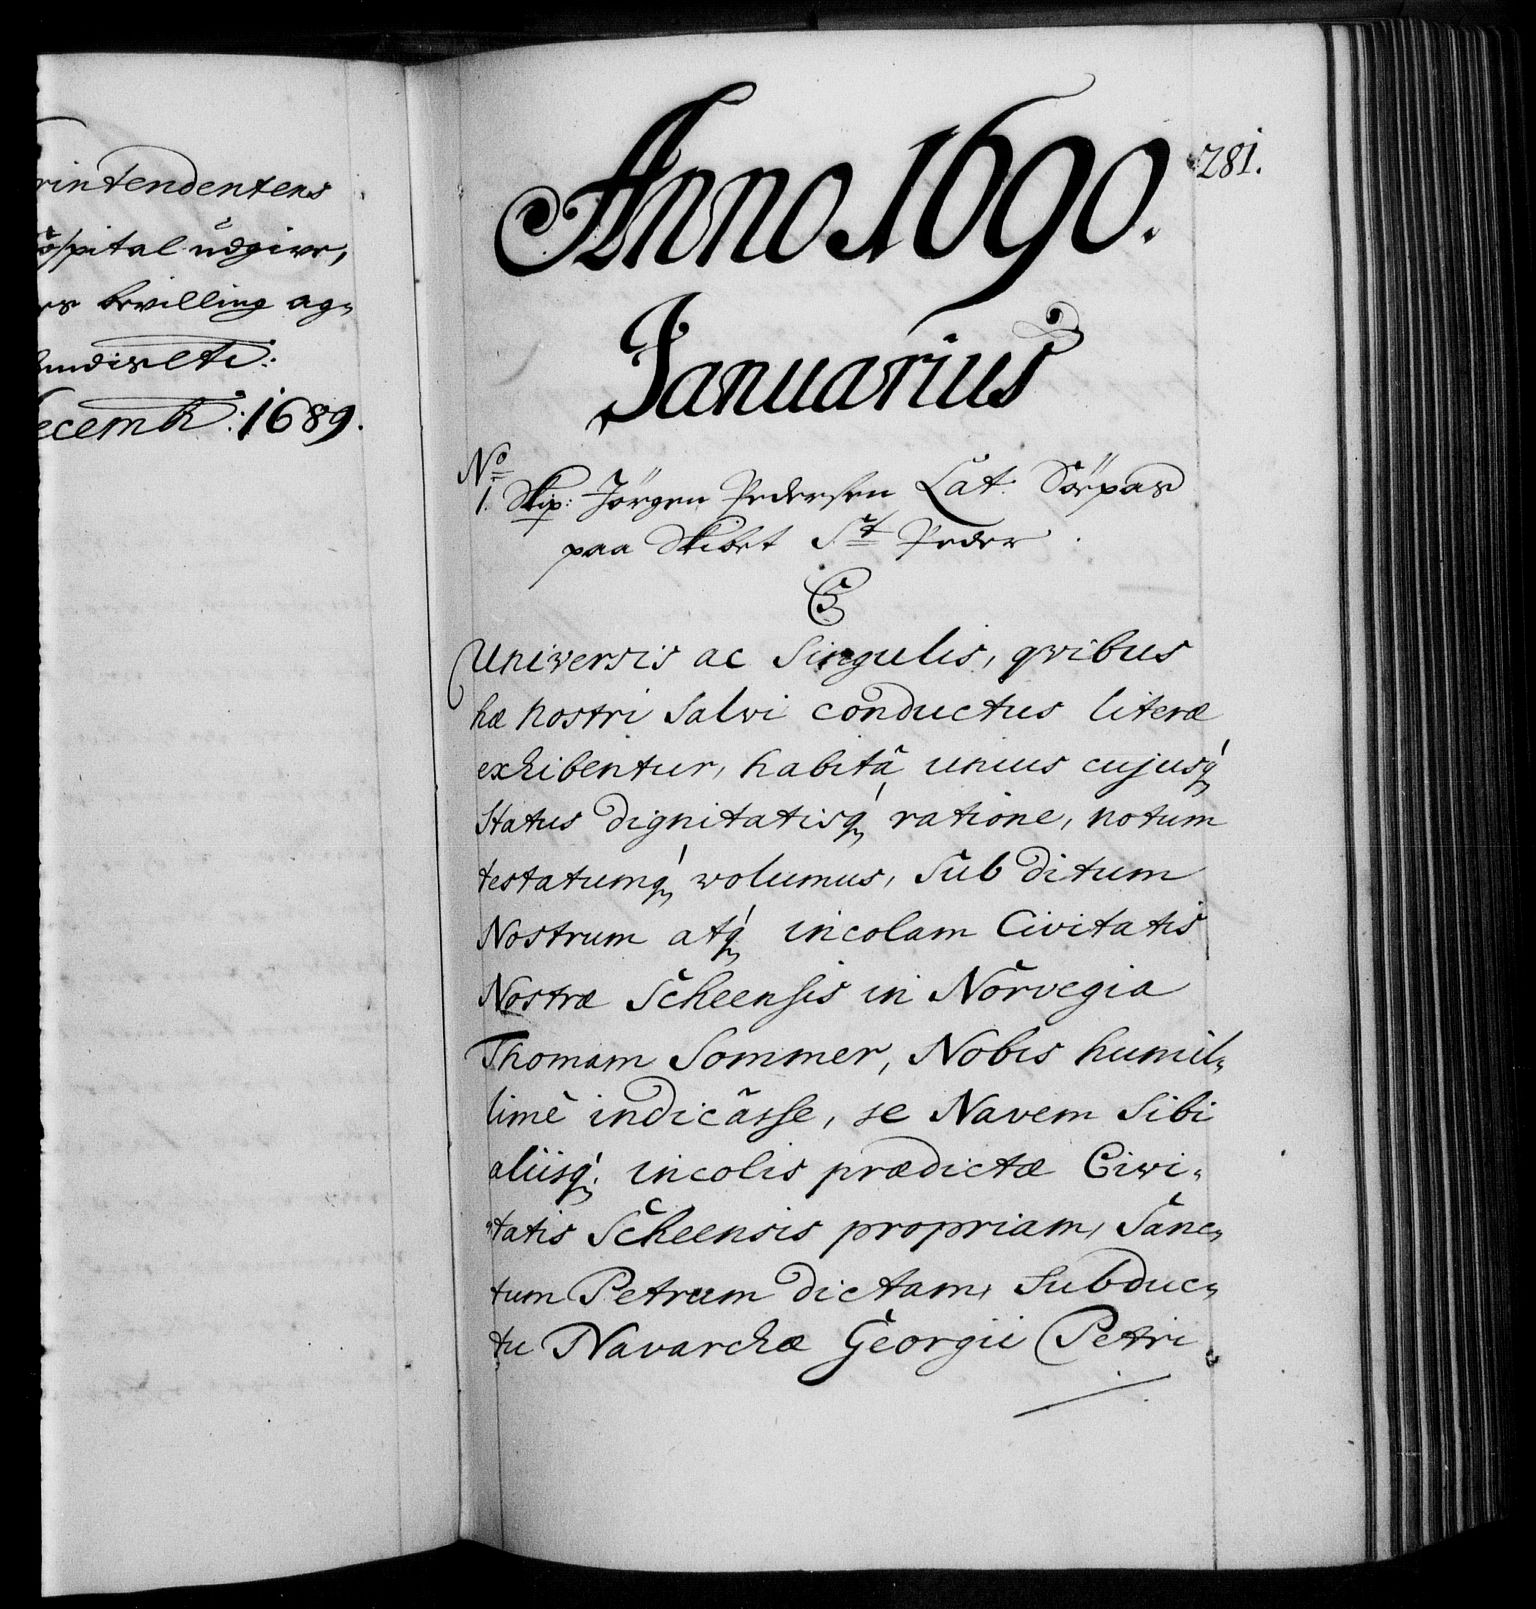 rintendentens
ospital udgive,
es bevilling ag=
decemb: 1689.
281.
Anno 1690.
Januarius
No
1. Skip: Jörgen Pedersen Lat: Söepas
paa Skibet St Peder
C5
Universis ac Singulis, qvibus
hæ nostri Salvi conductus literæ
exhibentur, habitâ unius cujusq́
Status dignitatisq́ ratione, notum
testatumq́ volumus, Subditum
Nostrum atq́ incolam Civitatis
Nostræ Scheensis in Norvegia
Thomam Sommer, Nobis humil=
limè indicasse, se Navem Sibi
aliisq́ incolis prædictæ Civi=
tatis Scheensis propriam, Sanc=
tum Petrum dictam, Subduc=
tu Navarchæ Georgii Petri